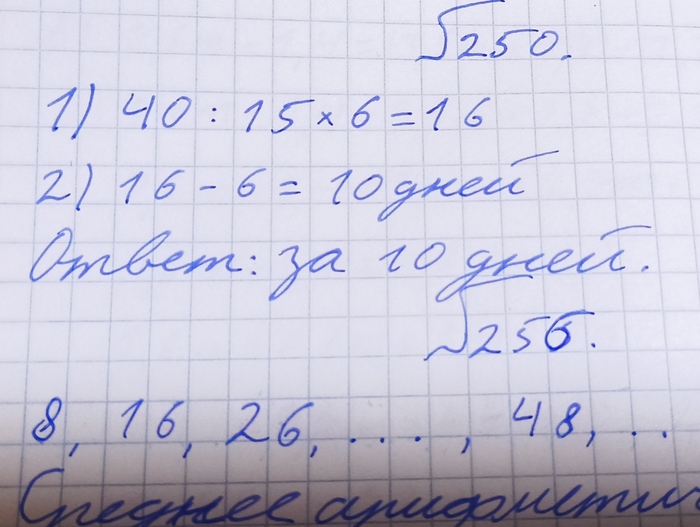 √250.
1) 40 : 15 × 6 = 16
2) 16 - 6 = 10 дней
Ответ: за 10 дней.
√256.
8, 16, 26, ...., 48, ..
Среднее арифмети